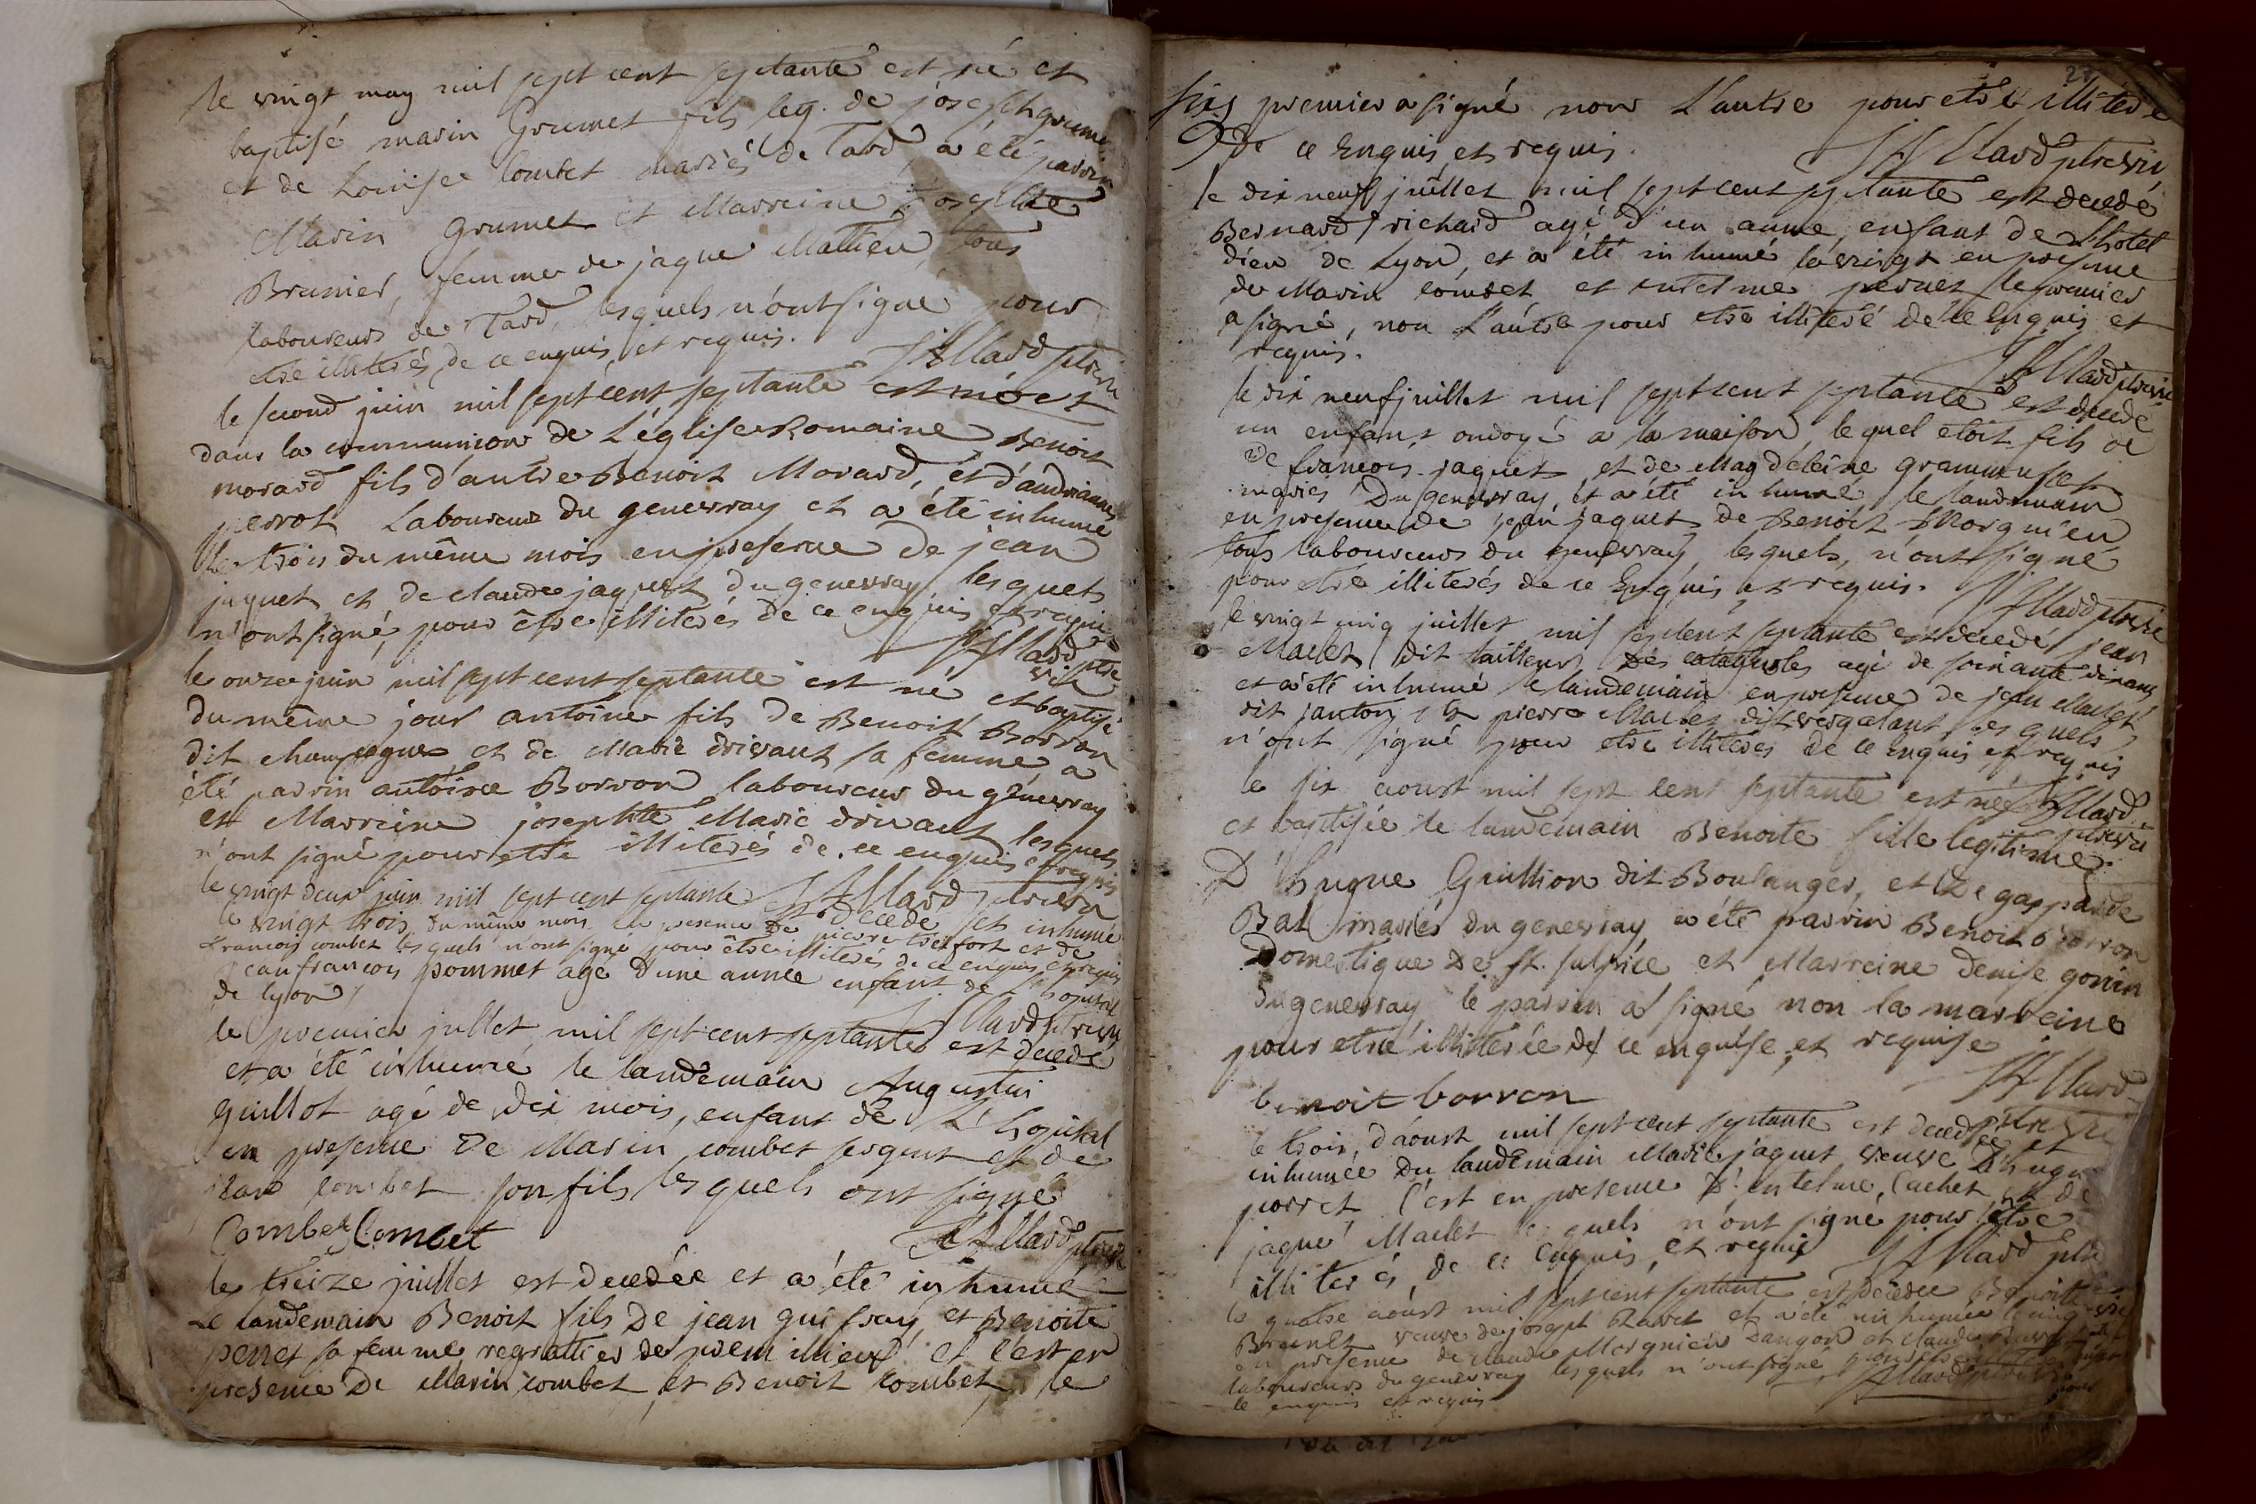 le vingt may mil sept cent septante est né et
baptisé marin Grumet fils leg. de joseph grumet
et de Louise Combet mariés de Tard a été parrin
Marin Grumet et Marreine Josephte
Brunier, femme de jaque Mathieu, tous
laboureurs de Tard, lesquels n'ont signé pour
etre illiterés de ce enquis et requis.
JAllard ptre vic
le second juin mil sept cent septante est mort
dans la communion de L'église Romaine Benoit
morard fils d'autre Benoit Morard, et d'andrianne
perrot Laboureur du genevray et a été inhumé
le trois du même mois en presence de jean
jaquet et de claude jaquet du genevray lesquels
n'ont signé, pour être illiterés de ce enquis et requis
JAllard ptre
vic
le onze juin mil sept cent septante est né et baptisé
du même jour antoine fils de Benoit Borron
dit champagne et de Marie drivaut sa femme, a
été parrin antoine Borron laboureur du genevray
et Marreine josephte Marie drivaut lesquels
n'ont signé pour etre illiterés de ce enquis et requis
JAllard ptre vic
le vingt deux juin mil sept cent septante est decedé et inhumé
le vingt trois du même mois en presence de pierre et de
francois combet lesquels n'ont signé pour être illiterés de ce enquis et requis
jean francois pommet agé d'une année enfant de L'hopital
de lyon
JAllard ptre vic
le premier jullet mil sept cent septante est decedé
et a été inhumé le landemain Augustin
guillot agé de dix mois, enfant de L'hopital
en presence de Marin combet sergent et de
jean combet son fils lesquels ont signé
Combet Combet
JAllard ptre vic
le treize juillet est decedée et a été inhumé
le landemain Benoit fils de jean guifray et Benoite
perret sa femme regrattier de premillieux et c'est en
presence de Marin combet, et Benoit combet, le
premier a signé non L'autre pour etre illiteré
de ce Enquis et requis.
JAllard ptre vic
le dix neuf juillet mil sept cent septante est decedé
Bernard richard agé d'un année, enfant de L'hotel
dieu de Lyon, et a été inhumé le vingt en presence
de Marin combet et entelme perret le premier
a signé, non L'autre pour etre illiteré de ce Enquis et
requis.
JAllard ptre vic
le dix neuf juillet mil sept cent septante est decedé
un enfant ondoyé a la maison, lequel etoit fils
de francois jaquet et de Magdeleine
mariés Du genevray, et a été inhumé le landemain
en presence de jean jaquet de Benoit
tous laboureurs du genevray, lesquels, n'ont signé
pour etre illiterés de ce Enquis et requis.
JAllard ptre vic
le vingt cinq juillet mil sept cent septante est decedé jean
Maclet dit tailleur agé de soixante dix ans
et a été inhumé le landemain en presence de jean Maclet
dit janton et pierre Maclet dit vergalant, lesquels
n'ont signé pour etre illiterés de ce Enquis et requis
JAllard
ptre vic
le six aoust mil sept cent septante est née
et baptisée le landemain Benoite fille legitime
D'hugue Guillion dit Boulanger, et De gasparde
Bal mariés du genevray a été parrin Benoit Borron
Domestique De St. sulpice et Marreine denise gonin
du genevray le parrin a signé non la marreine
pour etre illiterée de ce enquise, et requise
JAllard
ptre vic
benoit borron
le trois, d'aoust mil sept cent septante est decedée et
inhumée Du landemain Marie jaquet veuve D'hugue
porret C'est en presence D'entelme Cachet et de
jaque Maclet lesquels n'ont signé pour etre
illiterés, de ce Enquis, et requis
JAllard ptre
le quatre aoust mil sept cent septante est decedée Benoitte
veuve de joseph Ravet et a été inhumée le cinq
en presence de claude et claude
laboureurs du genevray lesquels n'ont signé
JAllard ptre vic
ce enquis et requis